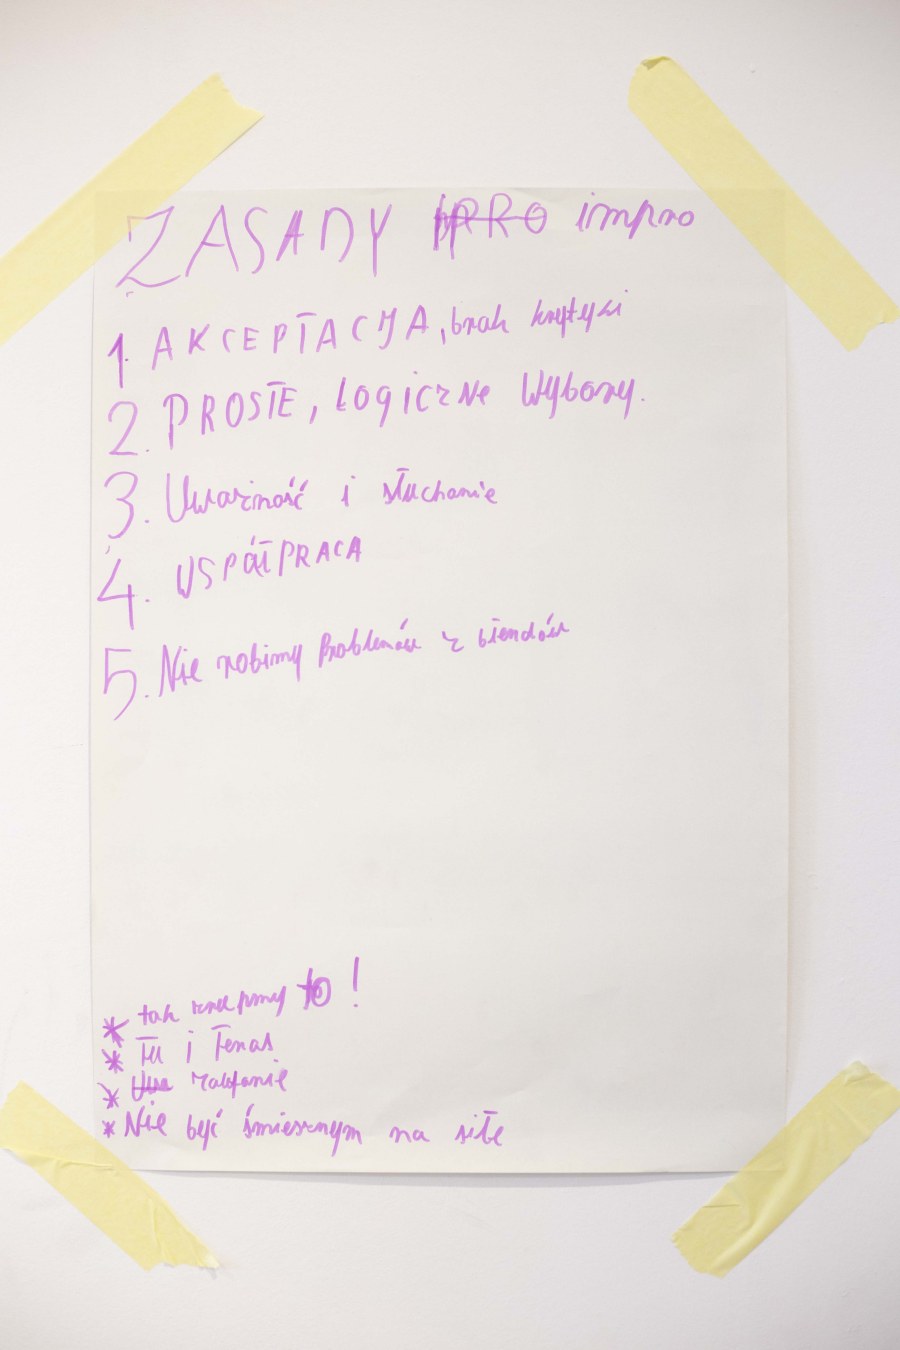 ZASADY impro
1. AKCEPTACJA, brak krytyki
2. PROSTE, LOGICZNE Wybory.
3. Uważność i słuchanie
4. WSPÓŁPRACA
5. Nie robimy problemów z błędów
* tak zróbmy to!
* Tu i Teraz
* zaufanie
* Nie być śmiesznym na siłę